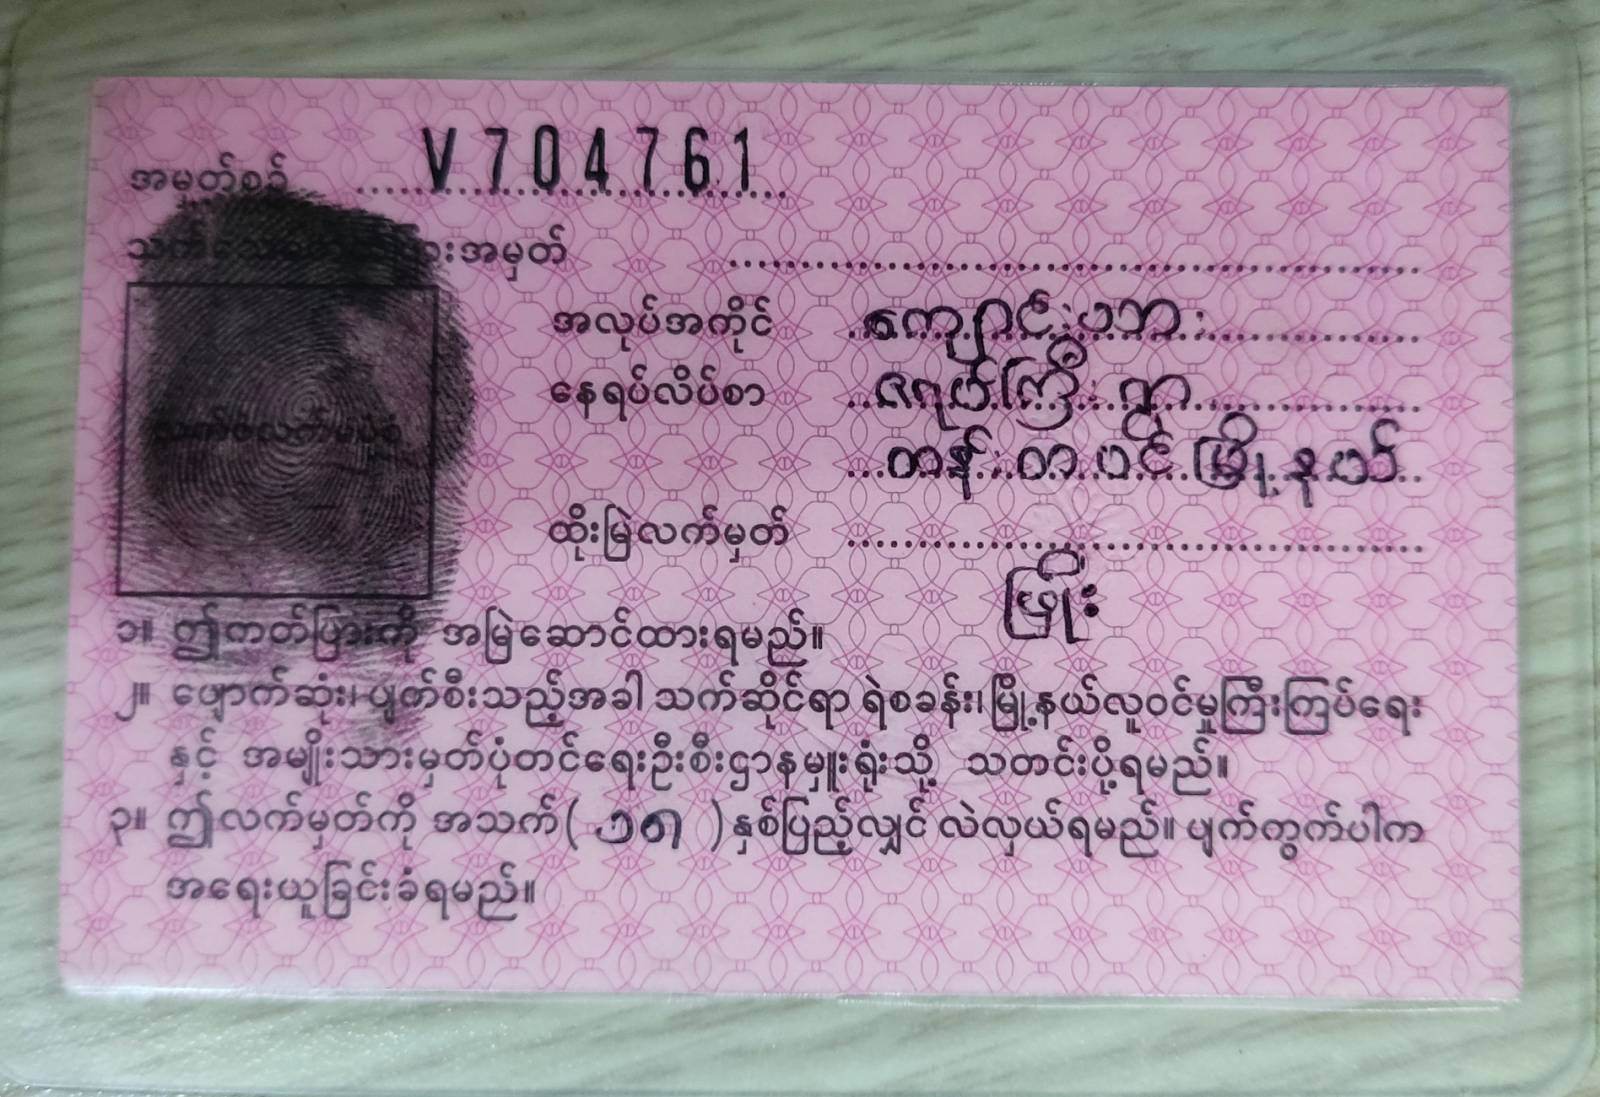 အမှတ်စဉ် V 704761
အမှတ်
အလုပ်အကိုင် ကျောင်းသား
နေရပ်လိပ်စာ ဇရပ်ကြီး ရွာ
တန်းတာပင် မြို့နယ်
ထိုးမြဲလက်မှတ်
ဖြိုး
၁။ ဤကတ်ပြားကို အမြဲဆောင်ထားရမည်။
၂။ ပျောက်ဆုံး၊ ပျက်စီးသည့်အခါ သက်ဆိုင်ရာ ရဲစခန်း၊ မြို့နယ်လူဝင်မှုကြီးကြပ်ရေး
နှင့် အမျိုးသားမှတ်ပုံတင်ရေးဦးစီးဌာနမှူးရုံးသို့ သတင်းပို့ရမည်။
၃။ ဤလက်မှတ်ကို အသက်( ၁၈ )နှစ်ပြည့်လျှင် လဲလှယ်ရမည်။ ပျက်ကွက်ပါက
အရေးယူခြင်းခံရမည်။